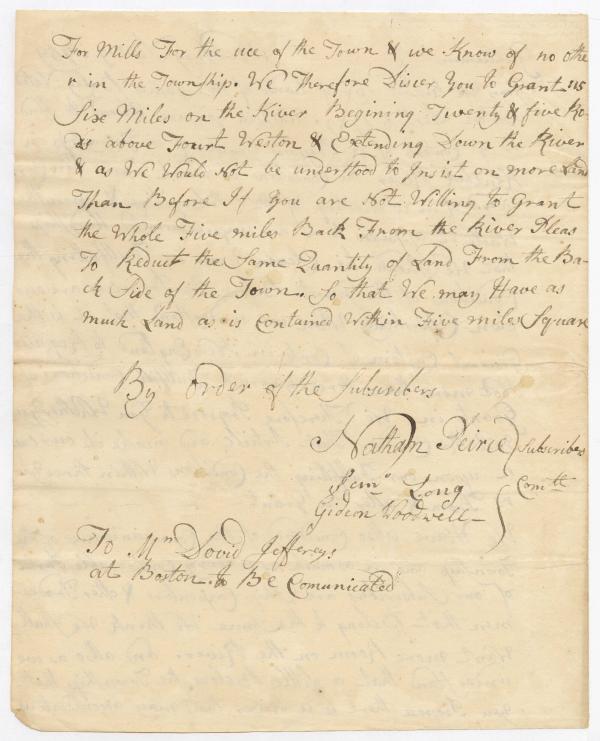 For Mills For the uce of the Town & we Know of no othe
r in the Township. We Therefore Disier You to Grant us
Sixe Miles on the River Begining Twenty & five Ro-
ds above Fourt Weston & Extending Down the River
& as We Would Not be understood to Insist on more Land
Than Before If You are Not Willing to Grant
the Whole Five miles Back From the River Pleas
To Reduct the Same Quantity of Land From the Ba-
ck Side of the Town. So that We may Have as
much Land as is Contained Within Five miles Square
By order of the Subscribers
Nathan Peirce Subscribers
Long Comtt
Gideon Woodwell
To Mr. David Jefferys
at Boston. to Be Comunicated